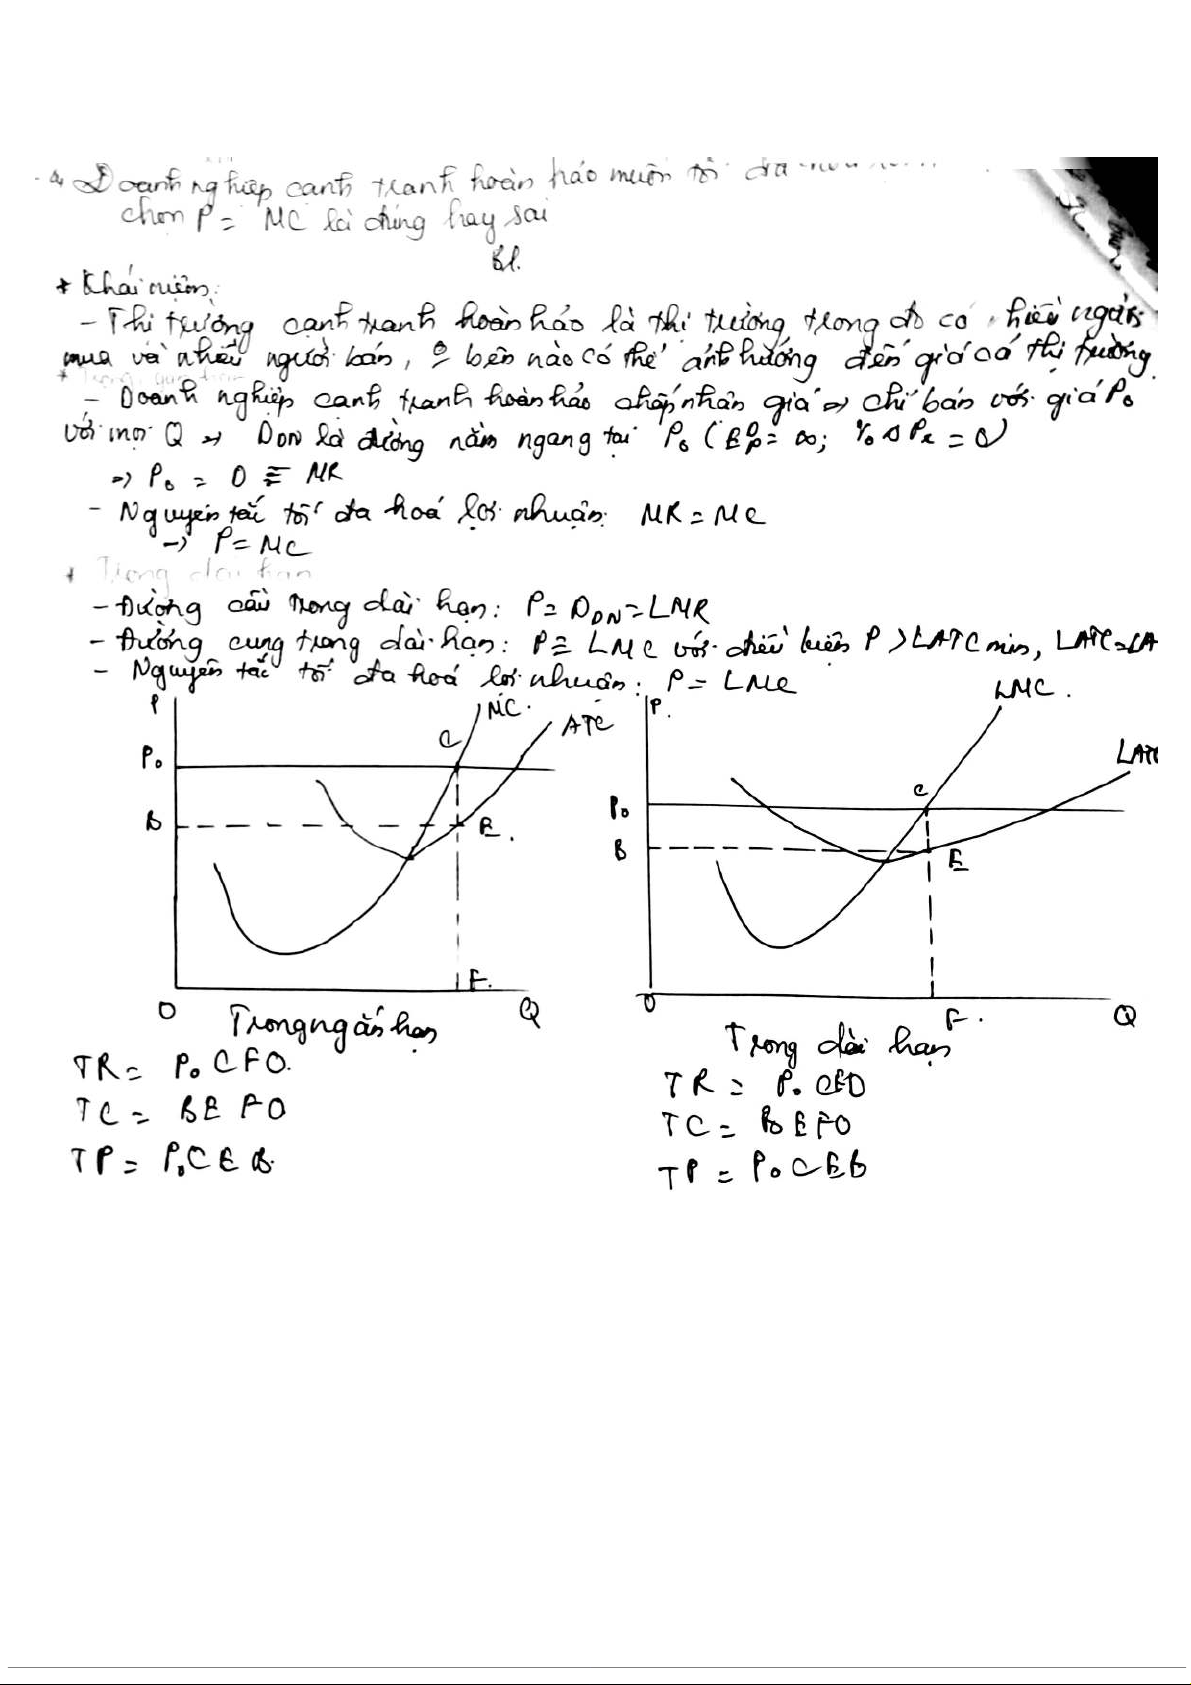 Doanh nghiệp cạnh tranh hoàn hảo muốn tối đa hoá
chọn P = MC là đúng hay sai
Bl.
* Khái niệm:
- Thị trường cạnh tranh hoàn hảo là thị trường trong đó có nhiều người
mua và nhiều người bán, bên nào có thể ảnh hưởng đến giá cả thị trường
- Doanh nghiệp cạnh tranh hoàn hảo chấp nhận giá => chỉ bán với giá P₀
với mọi Q => D_DN là đường nằm ngang tại P₀ (E_P^D = ∞; %ΔPx = 0)
=> P₀ = D ≡ MR
- Nguyên tắc tối đa hoá lợi nhuận: MR = MC
-> P = MC
+ Trong dài hạn
- Đường cầu trong dài hạn: P = D_DN = LMR
- Đường cung trong dài hạn: P ≡ LMC với điều kiện P > LATC min, LATC = LA
- Nguyên tắc tối đa hoá lợi nhuận: P = LMC
P MC. ATC
P₀ C
B E.
O F. Q
Trong ngắn hạn
TR = P₀CFO.
TC = BEFO
TP = P₀CEB.
P. LMC. LATC
P₀ C
B E
O F. Q
Trong dài hạn
TR = P₀
TC = BEFO
TP = P₀CEB